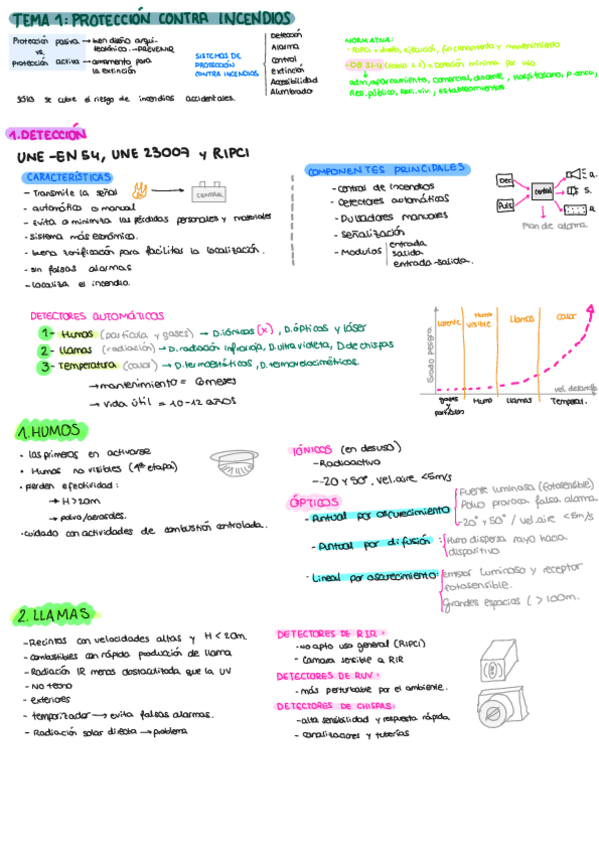 TEMA 1: PROTECCIÓN CONTRA INCENDIOS
Protección pasiva → buen diseño arqui-
tectónico → PREVENIR
vs.
protección activa → armamento para
la extinción
SISTEMAS DE
PROTECCIÓN
CONTRA INCENDIOS
Detección
Alarma
Control
extinción
Accesibilidad
Alumbrado
NORMATIVA:
- RIPCI = diseño, ejecución, funcionamiento y mantenimiento
- DB SI-4 = dotación mínima por uso
adm, aparcamiento, comercial, docente, hospitalario, p. conc,
Res. público, Res. viv., establecimientos
Sólo se cubre el riesgo de incendios accidentales.
1. DETECCIÓN
UNE-EN 54, UNE 23007 y RIPCI
CARACTERÍSTICAS
- Transmite la señal
CENTRAL
- automático o manual
- Evita o minimiza las pérdidas personales y materiales
- sistema más económico.
- buena zonificación para facilitar la localización.
- sin falsas alarmas
- Localiza el incendio.
COMPONENTES PRINCIPALES
- Central de incendios
- Detectores automáticos
- Pulsadores manuales
- Señalización
- Modulos
entrada
salida
entrada-salida.
Dec
Puls
central
A.
S.
R.
Plan de alarma
DETECTORES AUTOMÁTICOS
1- Humos (partícula y gases) → D. iónicos (x), D. ópticos y láser
2- Llamas (radiación) → D. radiación infraroja, D. ultravioleta, D. de chispas
3- Temperatura (calor) → D. termostáticos, D. termovelociméticos.
→ mantenimiento = 6 meses
→ vida útil = 10-12 años
Grado peligro
latente
Humo
visible
Llamas
calor
gases
y
partículas
Humo
Llamas
Temperat.
vel. desarrollo
1. HUMOS
• las primeros en activarse
• Humos no visibles (1ª etapa)
• pierden efectividad:
→ H > 20m
→ polvo/aerosoles.
• cuidado con actividades de combustión controlada.
IÓNICOS (en desuso)
- Radioactivo
- -20 y 50°. vel. aire < 5m/s
ÓPTICOS
- Puntual por oscurecimiento
Fuente luminosa (fotosensible)
Polvo provoca falsa alarma
-20° y 50° / vel. aire < 5m/s
- Puntual por difusión:
Humo dispersa rayo hacia
dispositivo
- Lineal por oscurecimiento:
emisor luminoso y receptor
fotosensible.
Grandes espacios (> 100m.
2. LLAMAS
- Recintos con velocidades altas y H < 20m.
- combustibles con rápida producción de llama
- Radiación IR menos obstaculitada que la UV
- No techo
- exteriores
- temporizador → evita falsas alarmas.
- Radiación solar directa → problema
DETECTORES DE RIR:
- no apto uso general (RIPCI)
- Cámara sensible a RIR
DETECTORES DE RUV:
- más perturbable por el ambiente.
DETECTORES DE CHISPAS:
- alta sensibilidad y respuesta rápida
- canalizaciones y tuberías